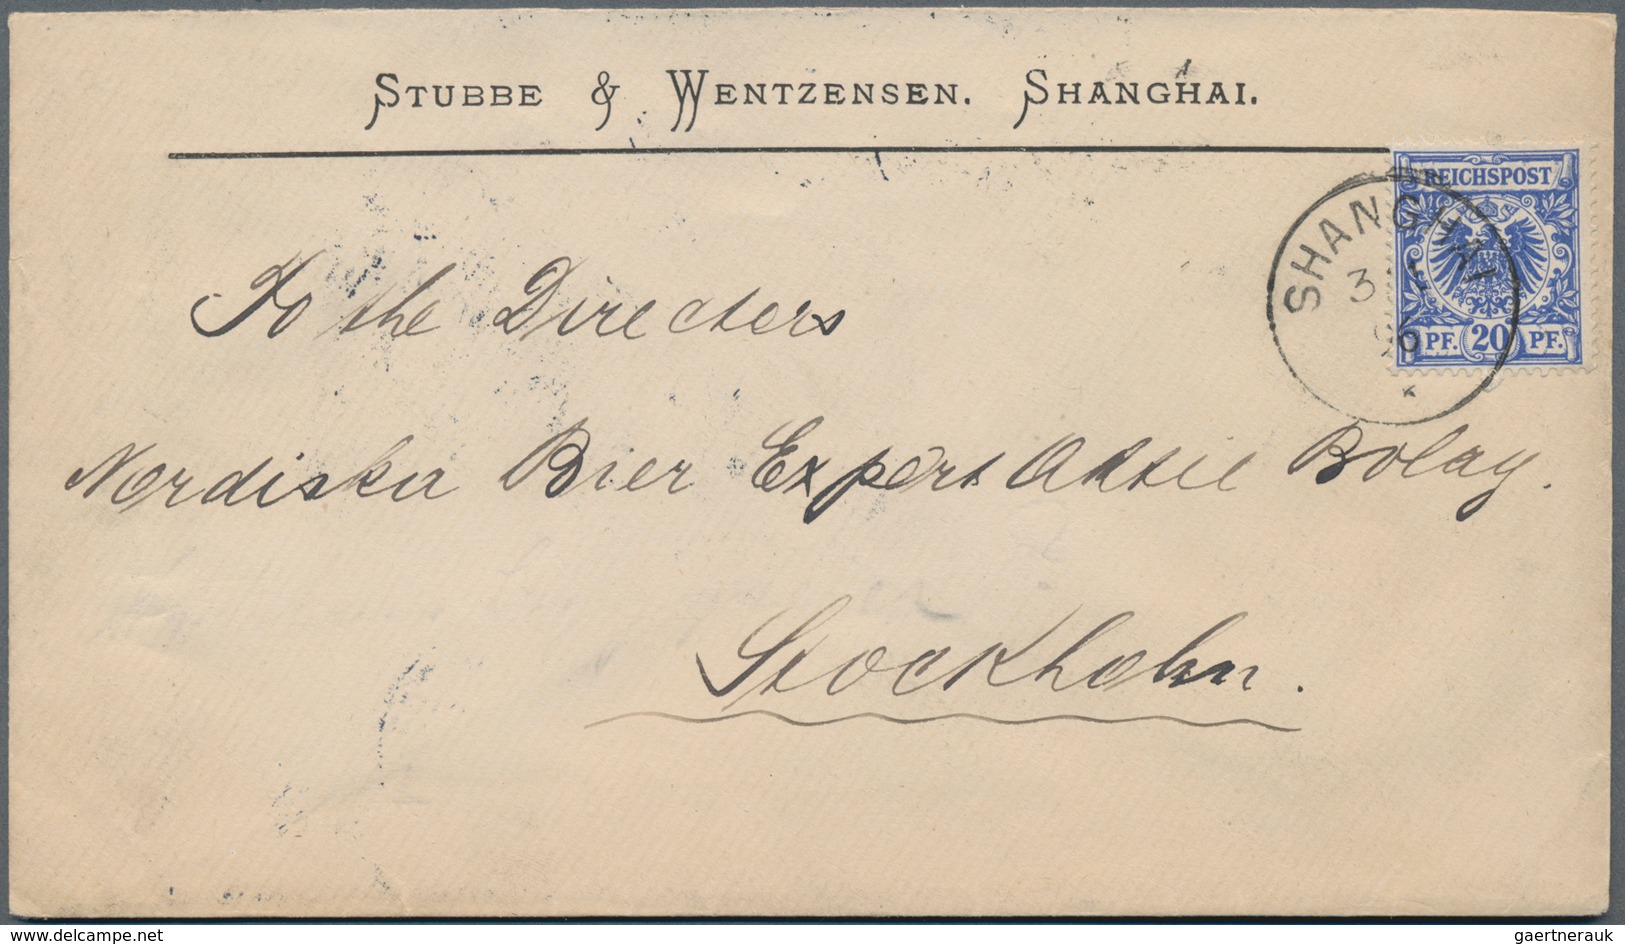 STUBBE & WENTZENSEN. SHANGHAI.
REICHSPOST
SHANGHAI
PF. 20 PF.
To the Directors
Nordiska Bier Export Aktie Bolag.
Stockholm.
delcampe.net
gaertnerauk